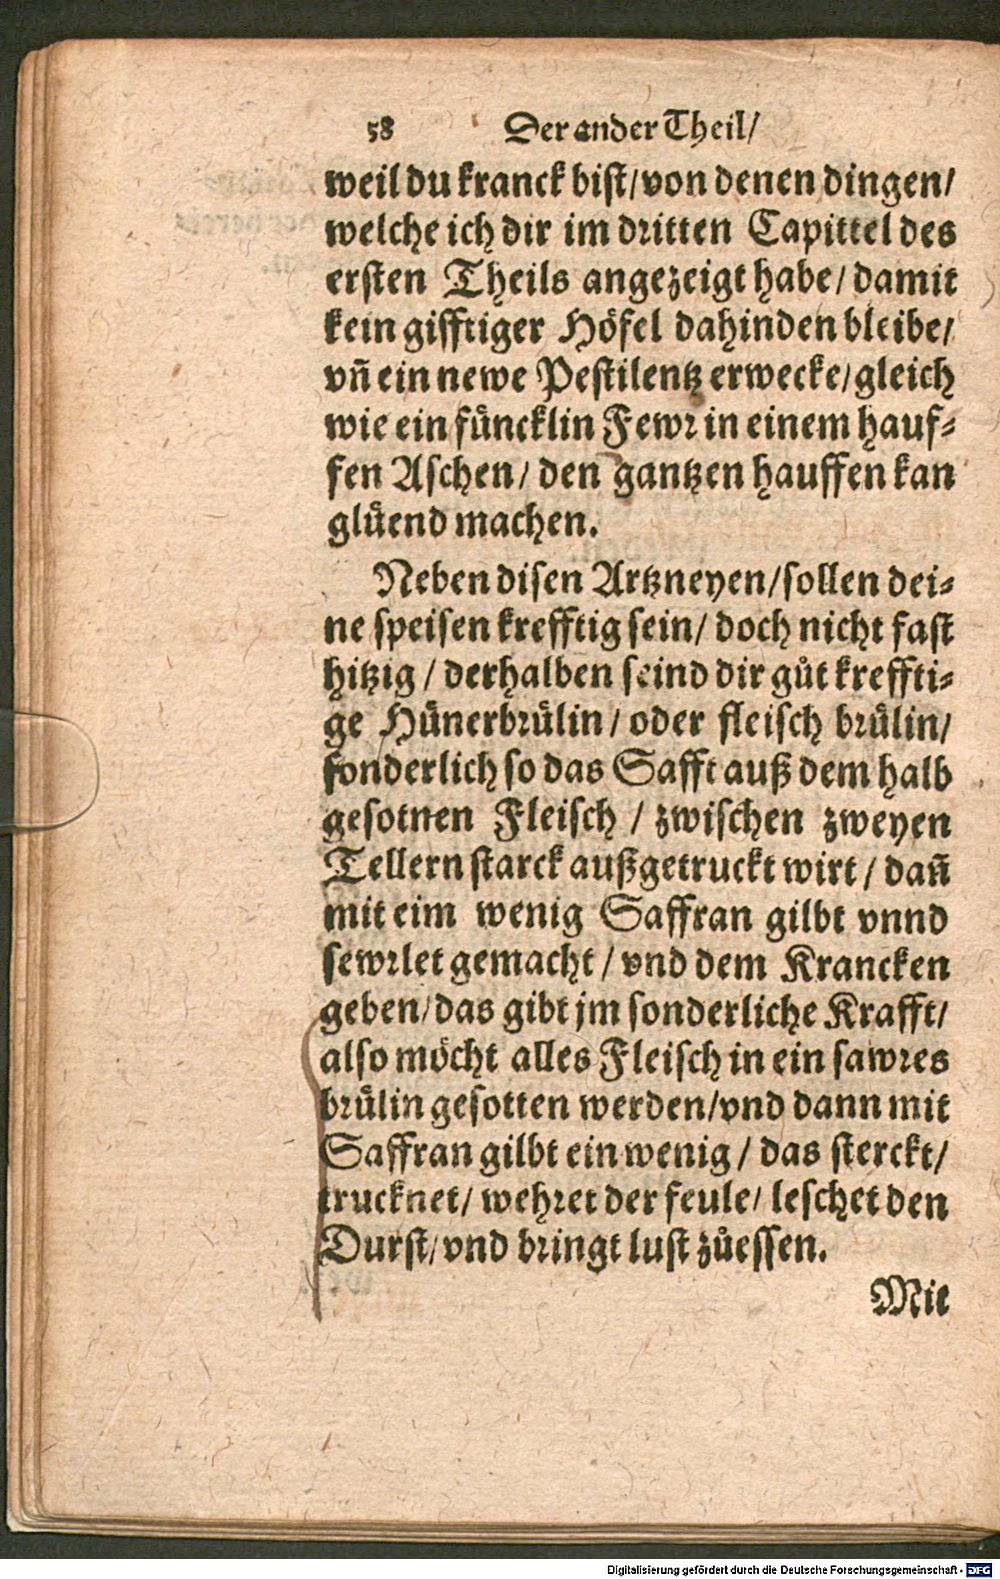 58 Der ander Theil/
weil du kranck bist/von denen dingen/
welche ich dir im dritten Capittel des
ersten Theils angezeigt habe/ damit
kein gifftiger Höfel dahinden bleibe/
vñ ein newe Pestilentz erwecke/gleich
wie ein füncklin Fewr in einem hauf⸗
fen Aschen/ den gantzen hauffen kan
glüend machen.
Neben disen Artzneyen/sollen dei⸗
ne speisen krefftig sein/ doch nicht fast
hitzig / derhalben seind dir gůt kreffti⸗
ge Hünerbrülin/ oder fleisch brülin/
sonderlich so das Safft auß dem halb
gesotnen Fleisch / zwischen zweyen
Tellern starck außgetruckt wirt / dañ
mit eim wenig Saffran gilbt vnnd
sewrlet gemacht / vnd dem Krancken
geben/das gibt jm sonderliche Krafft/
also möcht alles Fleisch in ein sawres
brülin gesotten werden/vnd dann mit
Saffran gilbt ein wenig / das sterckt/
trucknet/ wehret der feule/ leschet den
Durst/vnd bringt lust zůessen.
Mit
Digitalisierung gefördert durch die Deutsche Forschungsgemeinschaft - DFG